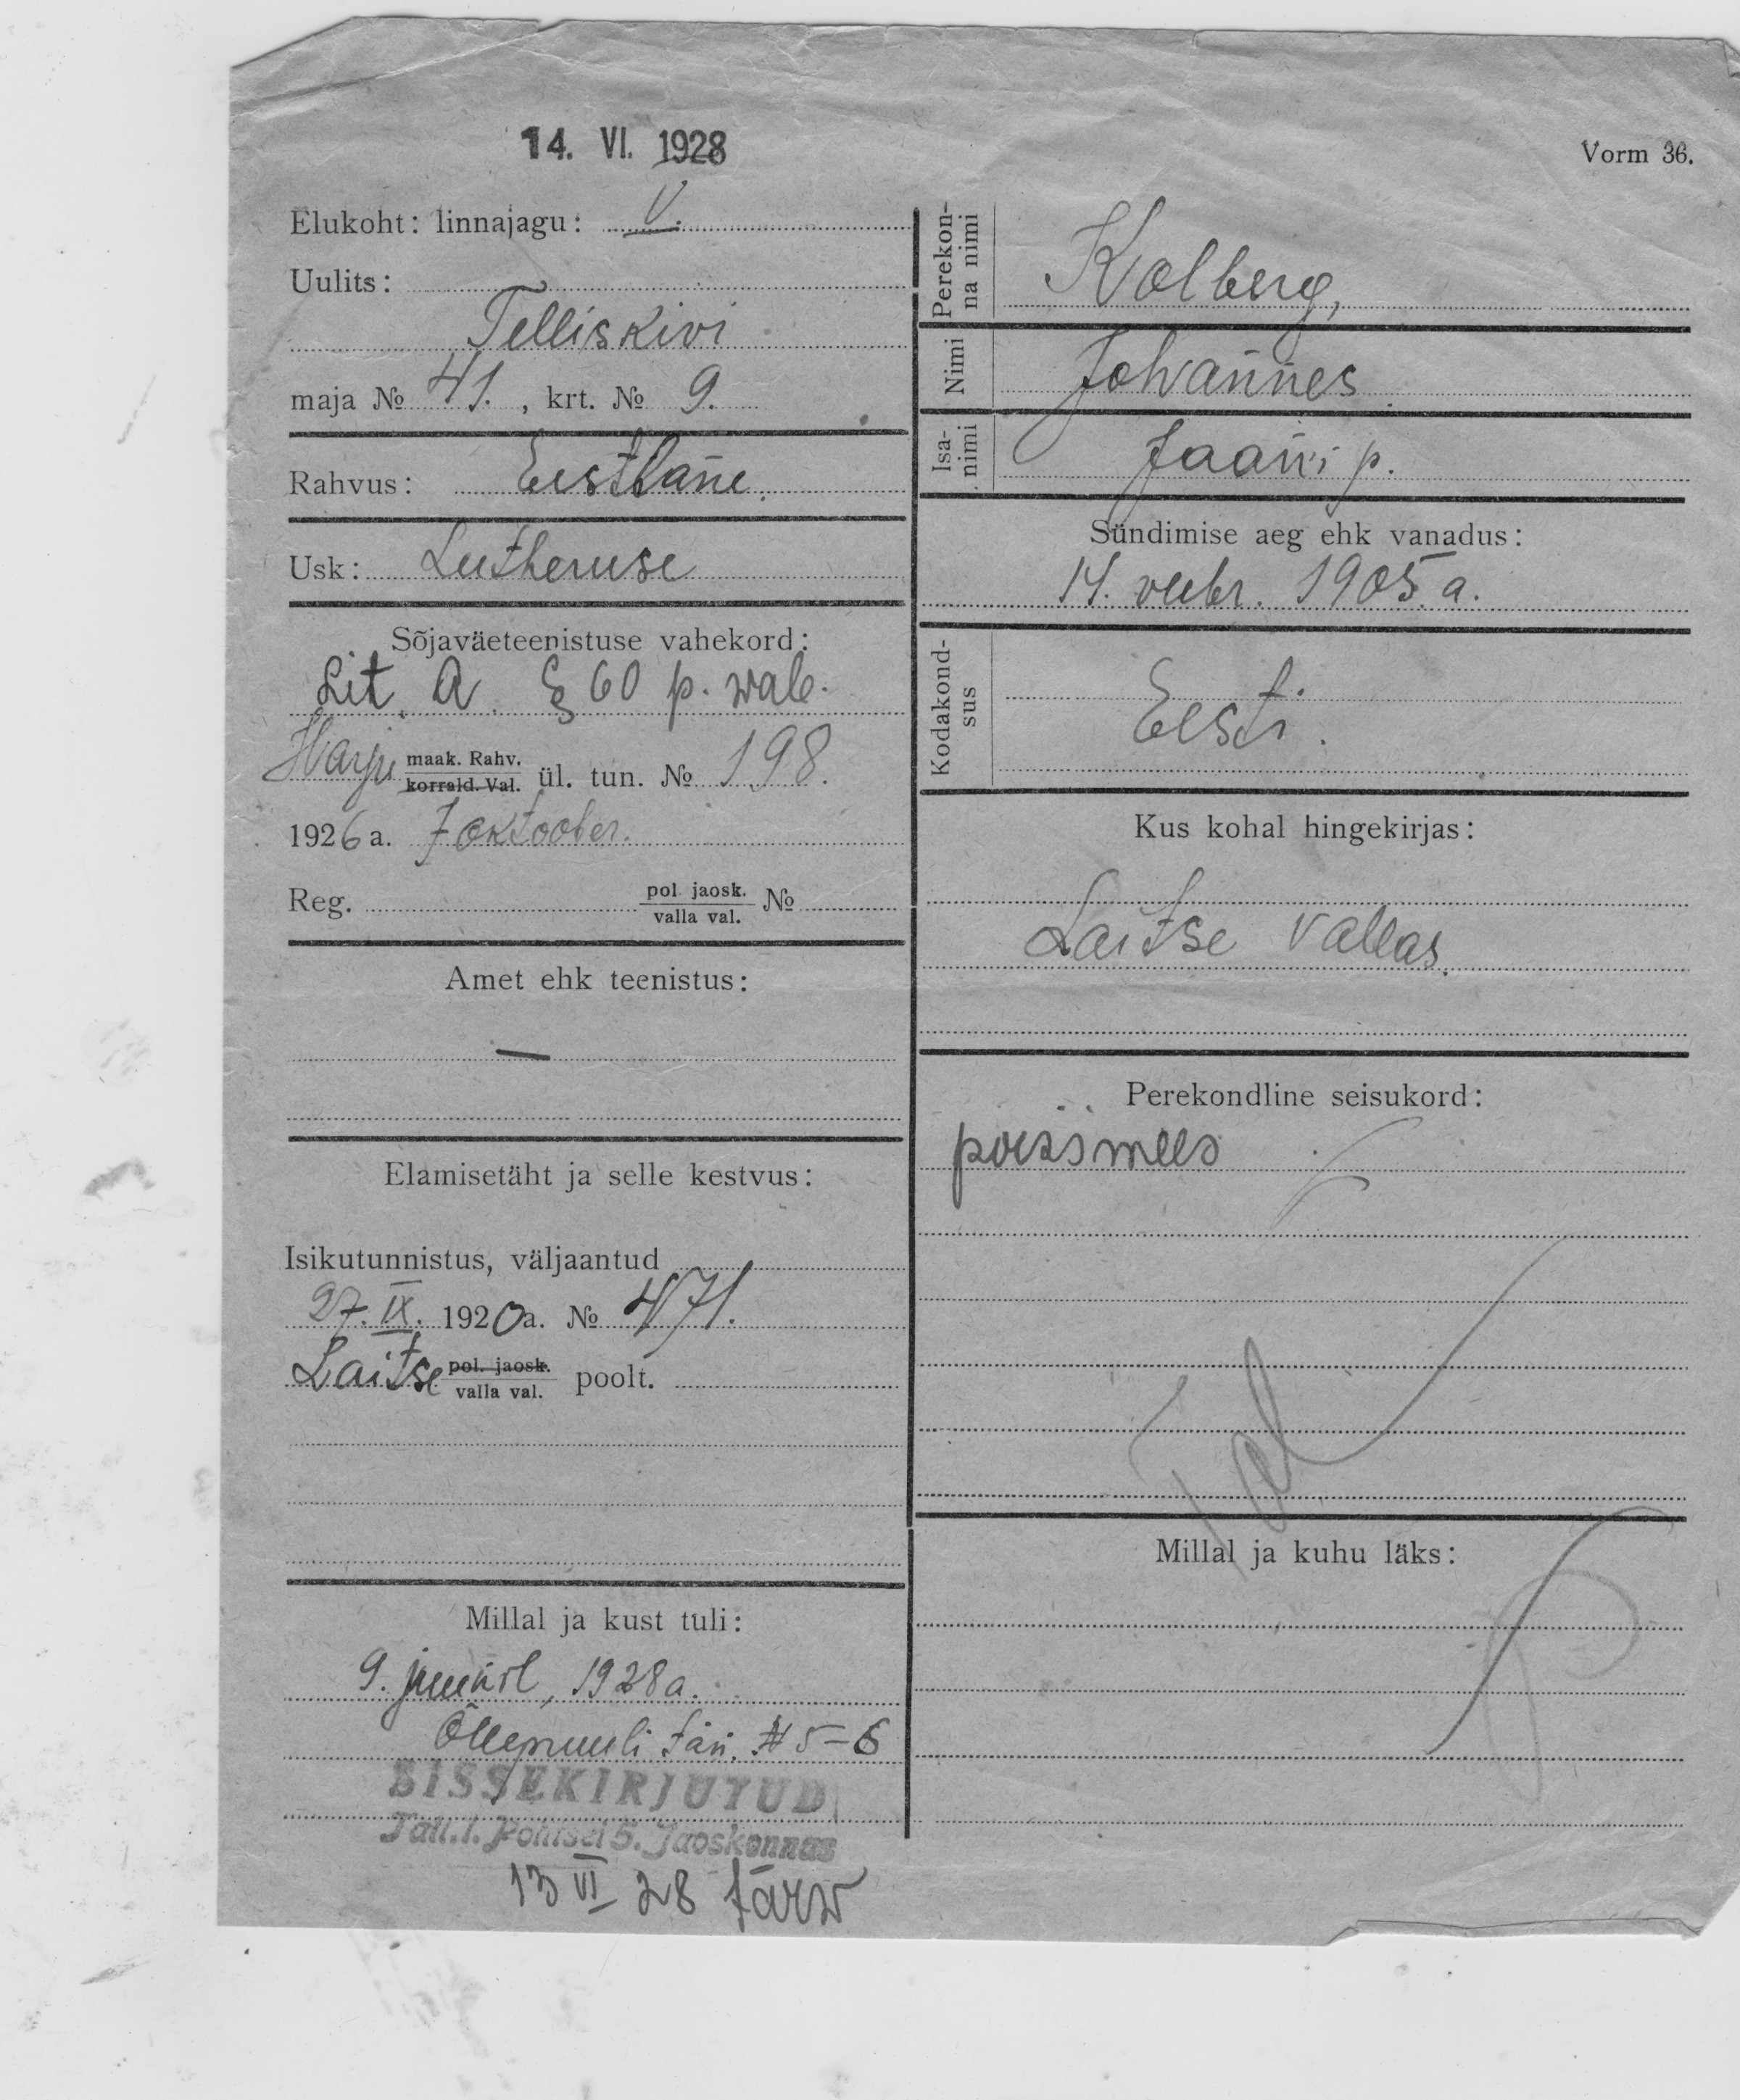 14. VI. 1928
Vorm 36.
Elukoht: linnajagu: V.
Uulits:
Telliskivi
maja № 41., krt. № 9.
Rahvus: Eestlane.
Usk: Lutheruse
Sõjaväeteenistuse vahekord:
Lit. A. § 60 p. wab.
Harju maak. Rahv.
korrald. Val. ül. tun. № 198.
1926 a. 7 oktoober.
Reg. pol. jaosk.
valla val. №
Amet ehk teenistus:
—
Elamisetäht ja selle kestvus:
Isikutunnistus, väljaantud
27. IX. 1920 a. № 471.
Laitse pol. jaosk.
valla val. poolt.
Millal ja kust tuli:
9. juunil, 1928 a.
Õllepruuli tän. # 5-6
SISSEKIRJUTUD
Tall. l. Politsei 5. Jaoskonnas
13 VI 28
Perekon-
na nimi
Kolberg,
Nimi
Johannes.
Isa-
nimi
Jaani p.
Sündimise aeg ehk vanadus:
14. veebr. 1905. a.
Kodakond-
sus
Eesti.
Kus kohal hingekirjas:
Laitse vallas.
Perekondline seisukord:
poissmees
Millal ja kuhu läks: